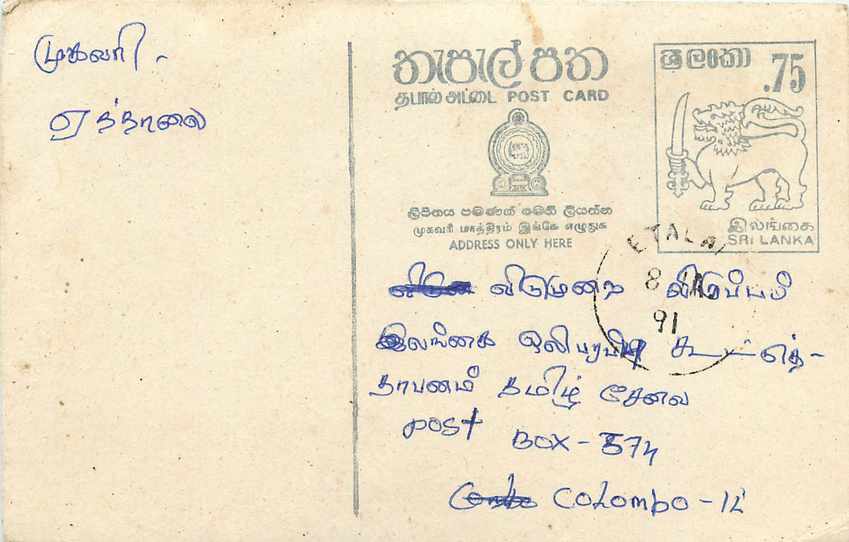 முகவரி -
ஏத்தாலை
තැපැල් පත
தபால் அட்டை POST CARD
ලිපිනය පමණක් මෙහි ලියන්න
முகவரி மாத்திரம் இங்கே எழுதுக
ADDRESS ONLY HERE
ශ්‍රී ලංකා
.75
இலங்கை
SRI LANKA
ETALAI
8
91
விடுமுறை விருப்பம்
இலங்கை ஒலிபரப்பு கூட்டுத்-
தாபனம் தமிழ் சேவை
POST BOX - 574
COLOMBO -